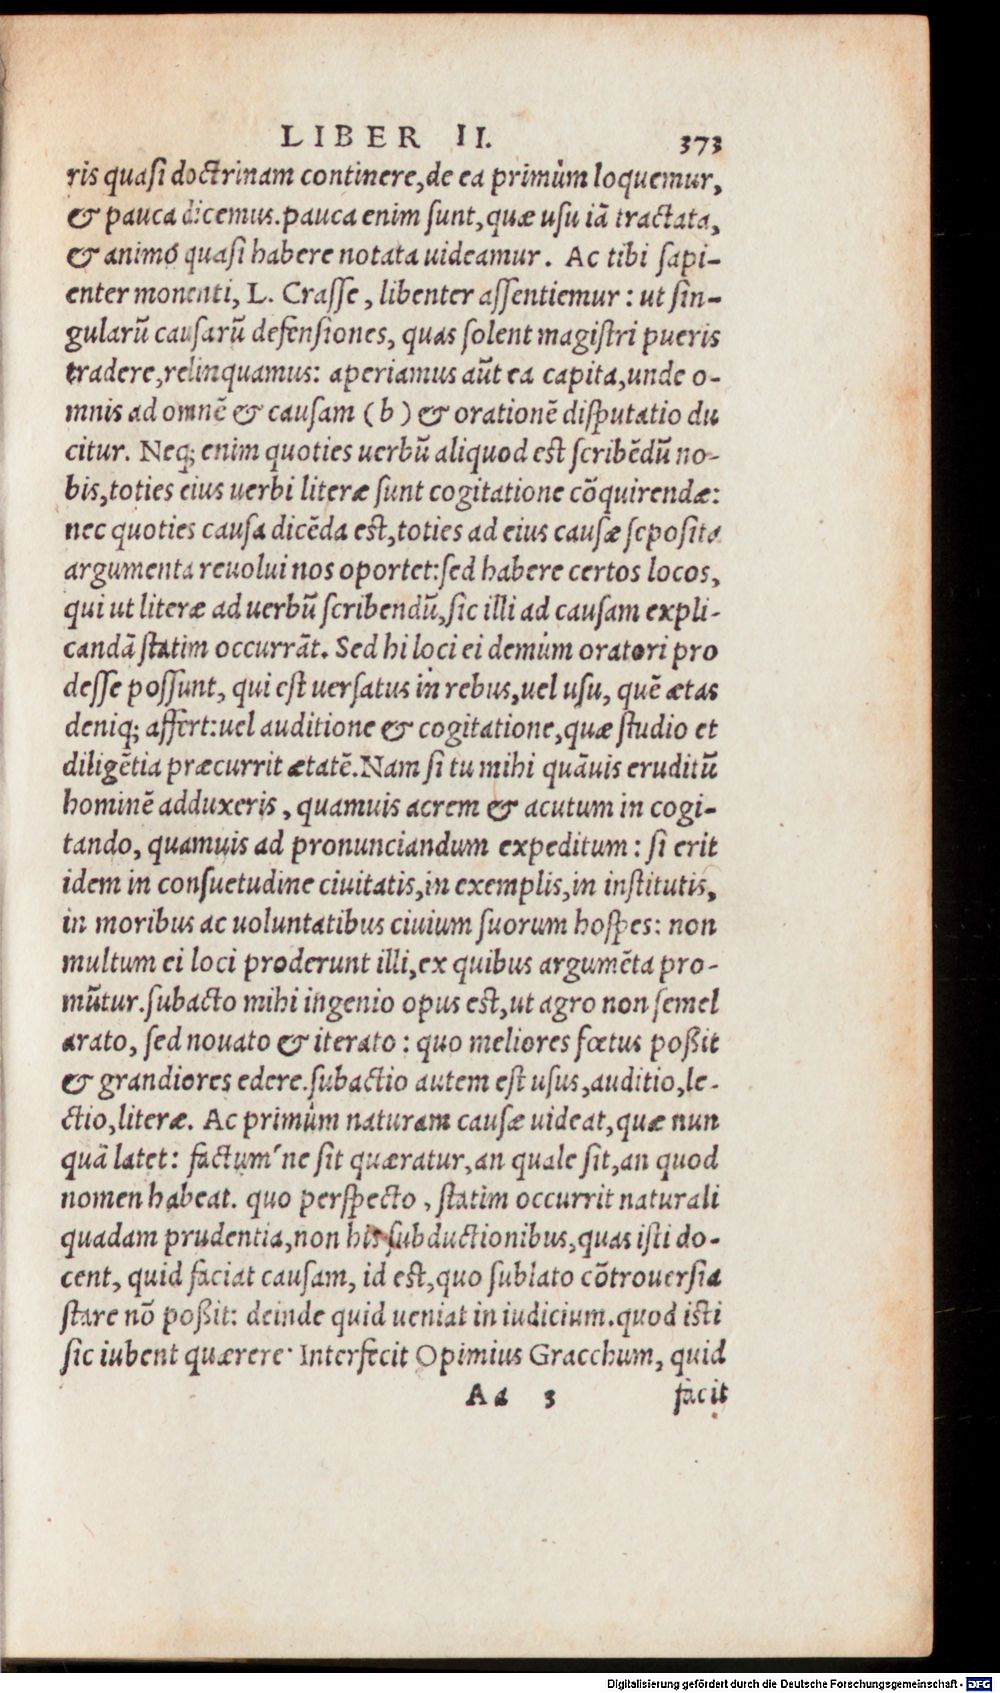 LIBER II. 373
ris quasi doctrinam continere, de ea primùm loquemur,
& pauca dicemus. pauca enim sunt, quæ usu iã tractata,
& animo quasi habere notata uideamur. Ac tibi sapi-
enter monenti, L. Crasse, libenter assentiemur: ut sin-
gularũ causarũ defensiones, quas solent magistri pueris
tradere, relinquamus: aperiamus aũt ea capita, unde o-
mnis ad omnẽ & causam (b) & orationẽ disputatio du
citur. Neq; enim quoties uerbũ aliquod est scribẽdũ no-
bis, toties eius uerbi literæ sunt cogitatione cõquirendæ:
nec quoties causa dicẽda est, toties ad eius causæ seposita
argumenta reuolui nos oportet: sed habere certos locos,
qui ut literæ ad uerbũ scribendũ, sic illi ad causam expli-
candã statim occurrãt. Sed hi loci ei demùm oratori pro
desse possunt, qui est uersatus in rebus, uel usu, quẽ ætas
deniq; affert: uel auditione & cogitatione, quæ studio et
diligẽtia præcurrit ætatẽ. Nam si tu mihi quãuis eruditũ
hominẽ adduxeris, quamuis acrem & acutum in cogi-
tando, quamuis ad pronunciandum expeditum: si erit
idem in consuetudine ciuitatis, in exemplis, in institutis,
in moribus ac uoluntatibus ciuium suorum hospes: non
multum ei loci proderunt illi, ex quibus argumẽta pro-
mũtur. subacto mihi ingenio opus est, ut agro non semel
arato, sed nouato & iterato: quo meliores fœtus poßit
& grandiores edere. subactio autem est usus, auditio, le-
ctio, literæ. Ac primùm naturam causæ uideat, quæ nun
quã latet: factum'ne sit quæratur, an quale sit, an quod
nomen habeat. quo perspecto, statim occurrit naturali
quadam prudentia, non his subductionibus, quas isti do-
cent, quid faciat causam, id est, quo sublato cõtrouersia
stare nõ poßit: deinde quid ueniat in iudicium. quod isti
sic iubent quærere· Interfecit Opimius Gracchum, quid
Aa 3 facit
Digitalisierung gefördert durch die Deutsche Forschungsgemeinschaft - DFG